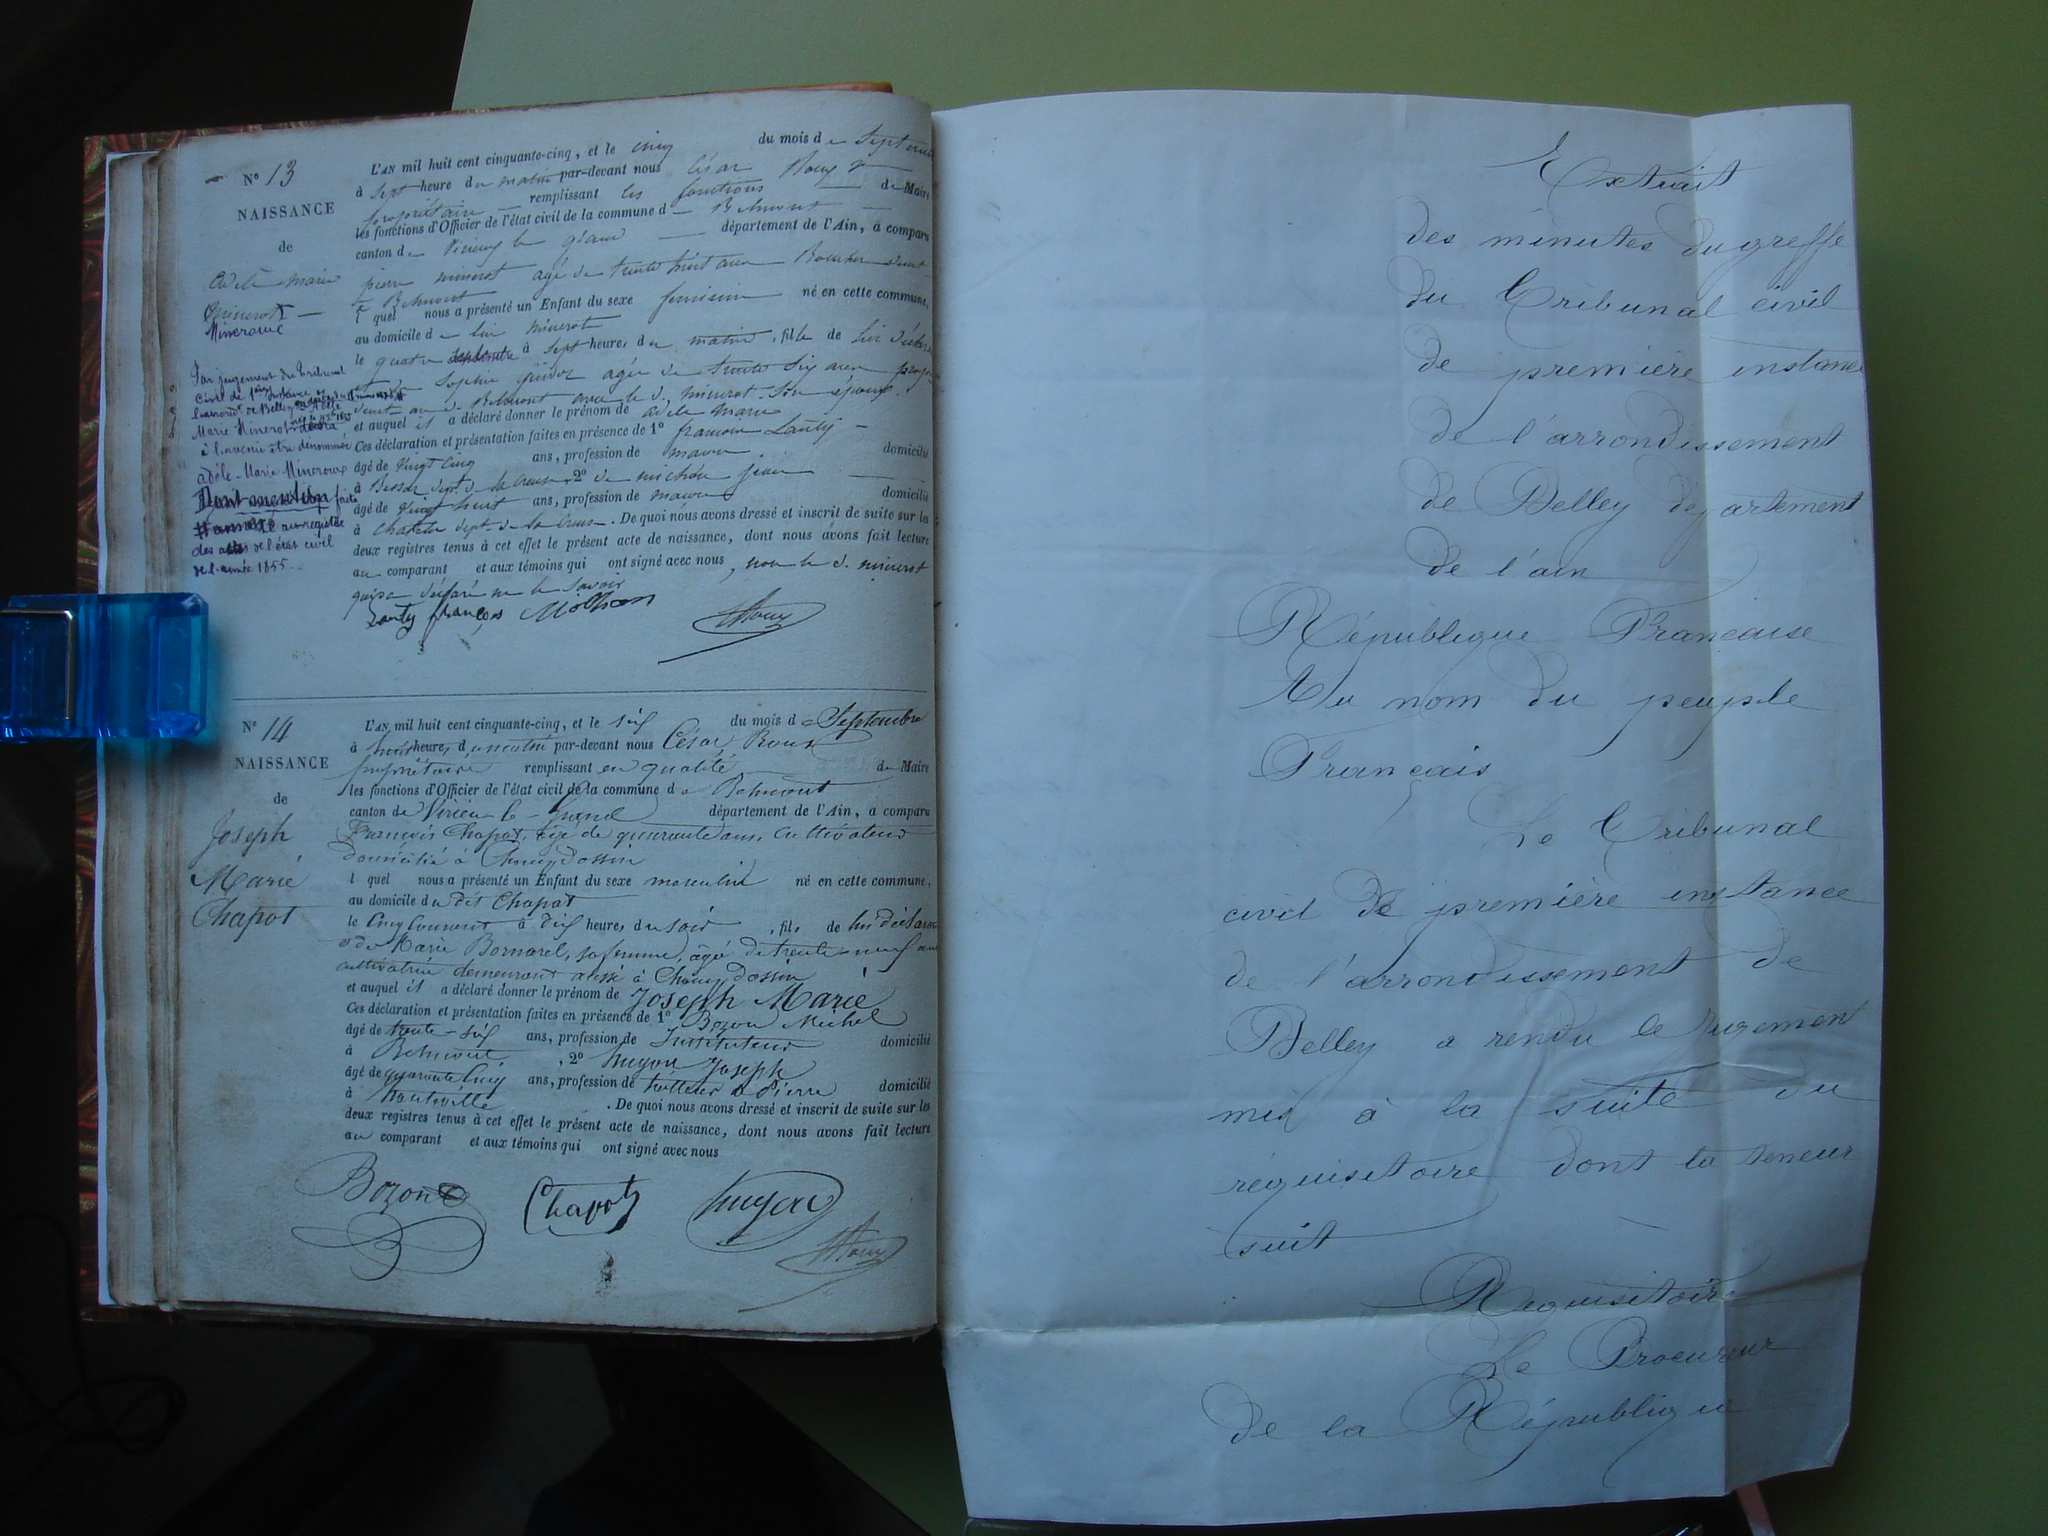 N° 13
NAISSANCE
de
Adèle marie
Minerot
Mineroux
Par jugement du Tribunal
Civil de 1ère Instance de
l'arrondt de Belley
Marie Minerot
à l'avenir être dénommée
adèle-Marie Mineroux
Dont mention faite
au registre
des actes de l'état civil
de l'année 1855
L'AN mil huit cent cinquante-cinq, et le cinq du mois de Septembre
à sept heure du matin par-devant nous César Roux
propriétaire remplissant les fonctions de Maire
les fonctions d'Officier de l'état civil de la commune d Belmont
canton de Virieu le grand département de l'Ain, a comparu
pierre minerot agé de trente huit ans
à Belmont
l quel nous a présenté un Enfant du sexe feminin né en cette commune,
au domicile de lui minerot
le quatre septembre à sept heures du matin, fille de lui déclarant
Sophie agée de trente six ans
au d. Belmont avec le d. minerot son épouse
et auquel il a déclaré donner le prénom de adèle marie
Ces déclaration et présentation faites en présence de 1° francois Lanty
âgé de vingt cinq ans, profession de macon domicilié
à dept. de la creuse, 2° de michon jean
âgé de vingt huit ans, profession de macon domicilié
à dept de la Creuse. De quoi nous avons dressé et inscrit de suite sur les
deux registres tenus à cet effet le présent acte de naissance, dont nous avons fait lecture
au comparant et aux témoins qui ont signé avec nous, non le d. minerot
qui a déclaré ne le savoir
Lanty françois
Roux
N° 14
NAISSANCE
de
Joseph
Marie
Chapot
L'AN mil huit cent cinquante-cinq, et le six du mois de Septembre
à heures du matin par-devant nous César Roux
propriétaire remplissant en qualité de Maire
les fonctions d'Officier de l'état civil de la commune de Belmont
canton de Virieu-le-Grand département de l'Ain, a comparu
François Chapot, âgé de quarante ans, cultivateur
domicilié à Champdossin
l quel nous a présenté un Enfant du sexe masculin né en cette commune,
au domicile du dit Chapot
le Cinq Courant à dix heures du soir, fils de lui déclarant
& de Marie Bornarel, sa femme, agée de trente-neuf ans
cultivatrice demeurant aussi à Champdossin
et auquel il a déclaré donner le prénom de Joseph Marie
Ces déclaration et présentation faites en présence de 1° Bozon Michel
âgé de trente-six ans, profession de Instituteur domicilié
à Belmont, 2° hugon Joseph
âgé de quarante Cinq ans, profession de tailleur de Pierre domicilié
à hauteville. De quoi nous avons dressé et inscrit de suite sur les
deux registres tenus à cet effet le présent acte de naissance, dont nous avons fait lecture
au comparant et aux témoins qui ont signé avec nous
Bozon Chapot hugon
Roux
Extrait
des minutes du greffe
du Tribunal civil
de première instance
de l'arrondissement
de Belley département
de l'ain
République Française
Au nom du peuple
Français
Le Tribunal
civil de première instance
de l'arrondissement de
Belley a rendu le jugement
mis à la suite du
réquisitoire dont la teneur
suit
Requisitoire
Le Procureur
de la République